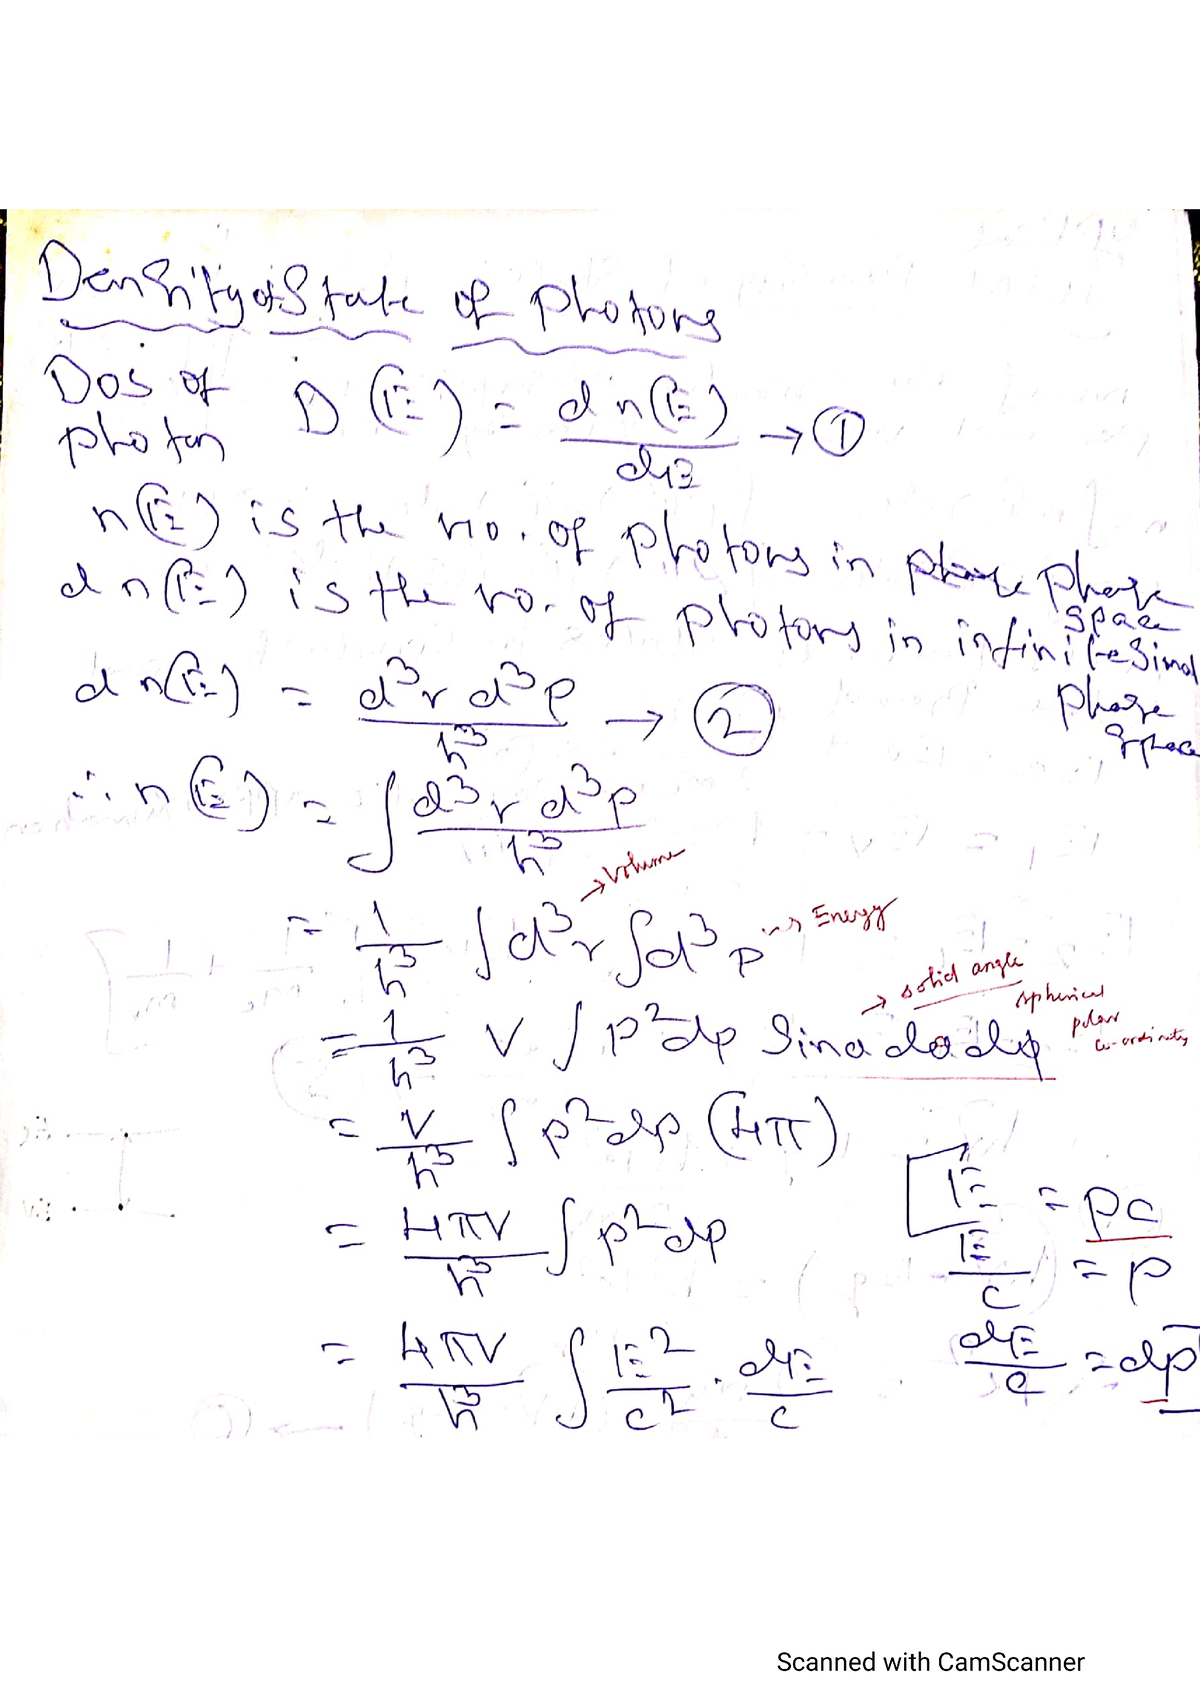 Density of State of photons
Dos of photon D(E) = dn(E)/dE → ①
n(E) is the no. of photons in phase space
dn(E) is the no. of photons in infinitesimal phase space
dn(E) = d³r d³p / h³ → ②
∴ n(E) = ∫ d³r d³p / h³
= 1/h³ ∫ d³r ∫ d³p
→ Volume
→ Energy
= 1/h³ V ∫ p² dp Sinθ dθ dφ
→ solid angle
spherical polar co-ordinates
= V/h³ ∫ p² dp (4π)
= 4πV/h³ ∫ p² dp
= 4πV/h³ ∫ E²/c² . dE/c
E = pc
E/c = p
dE/c = dp
Scanned with CamScanner